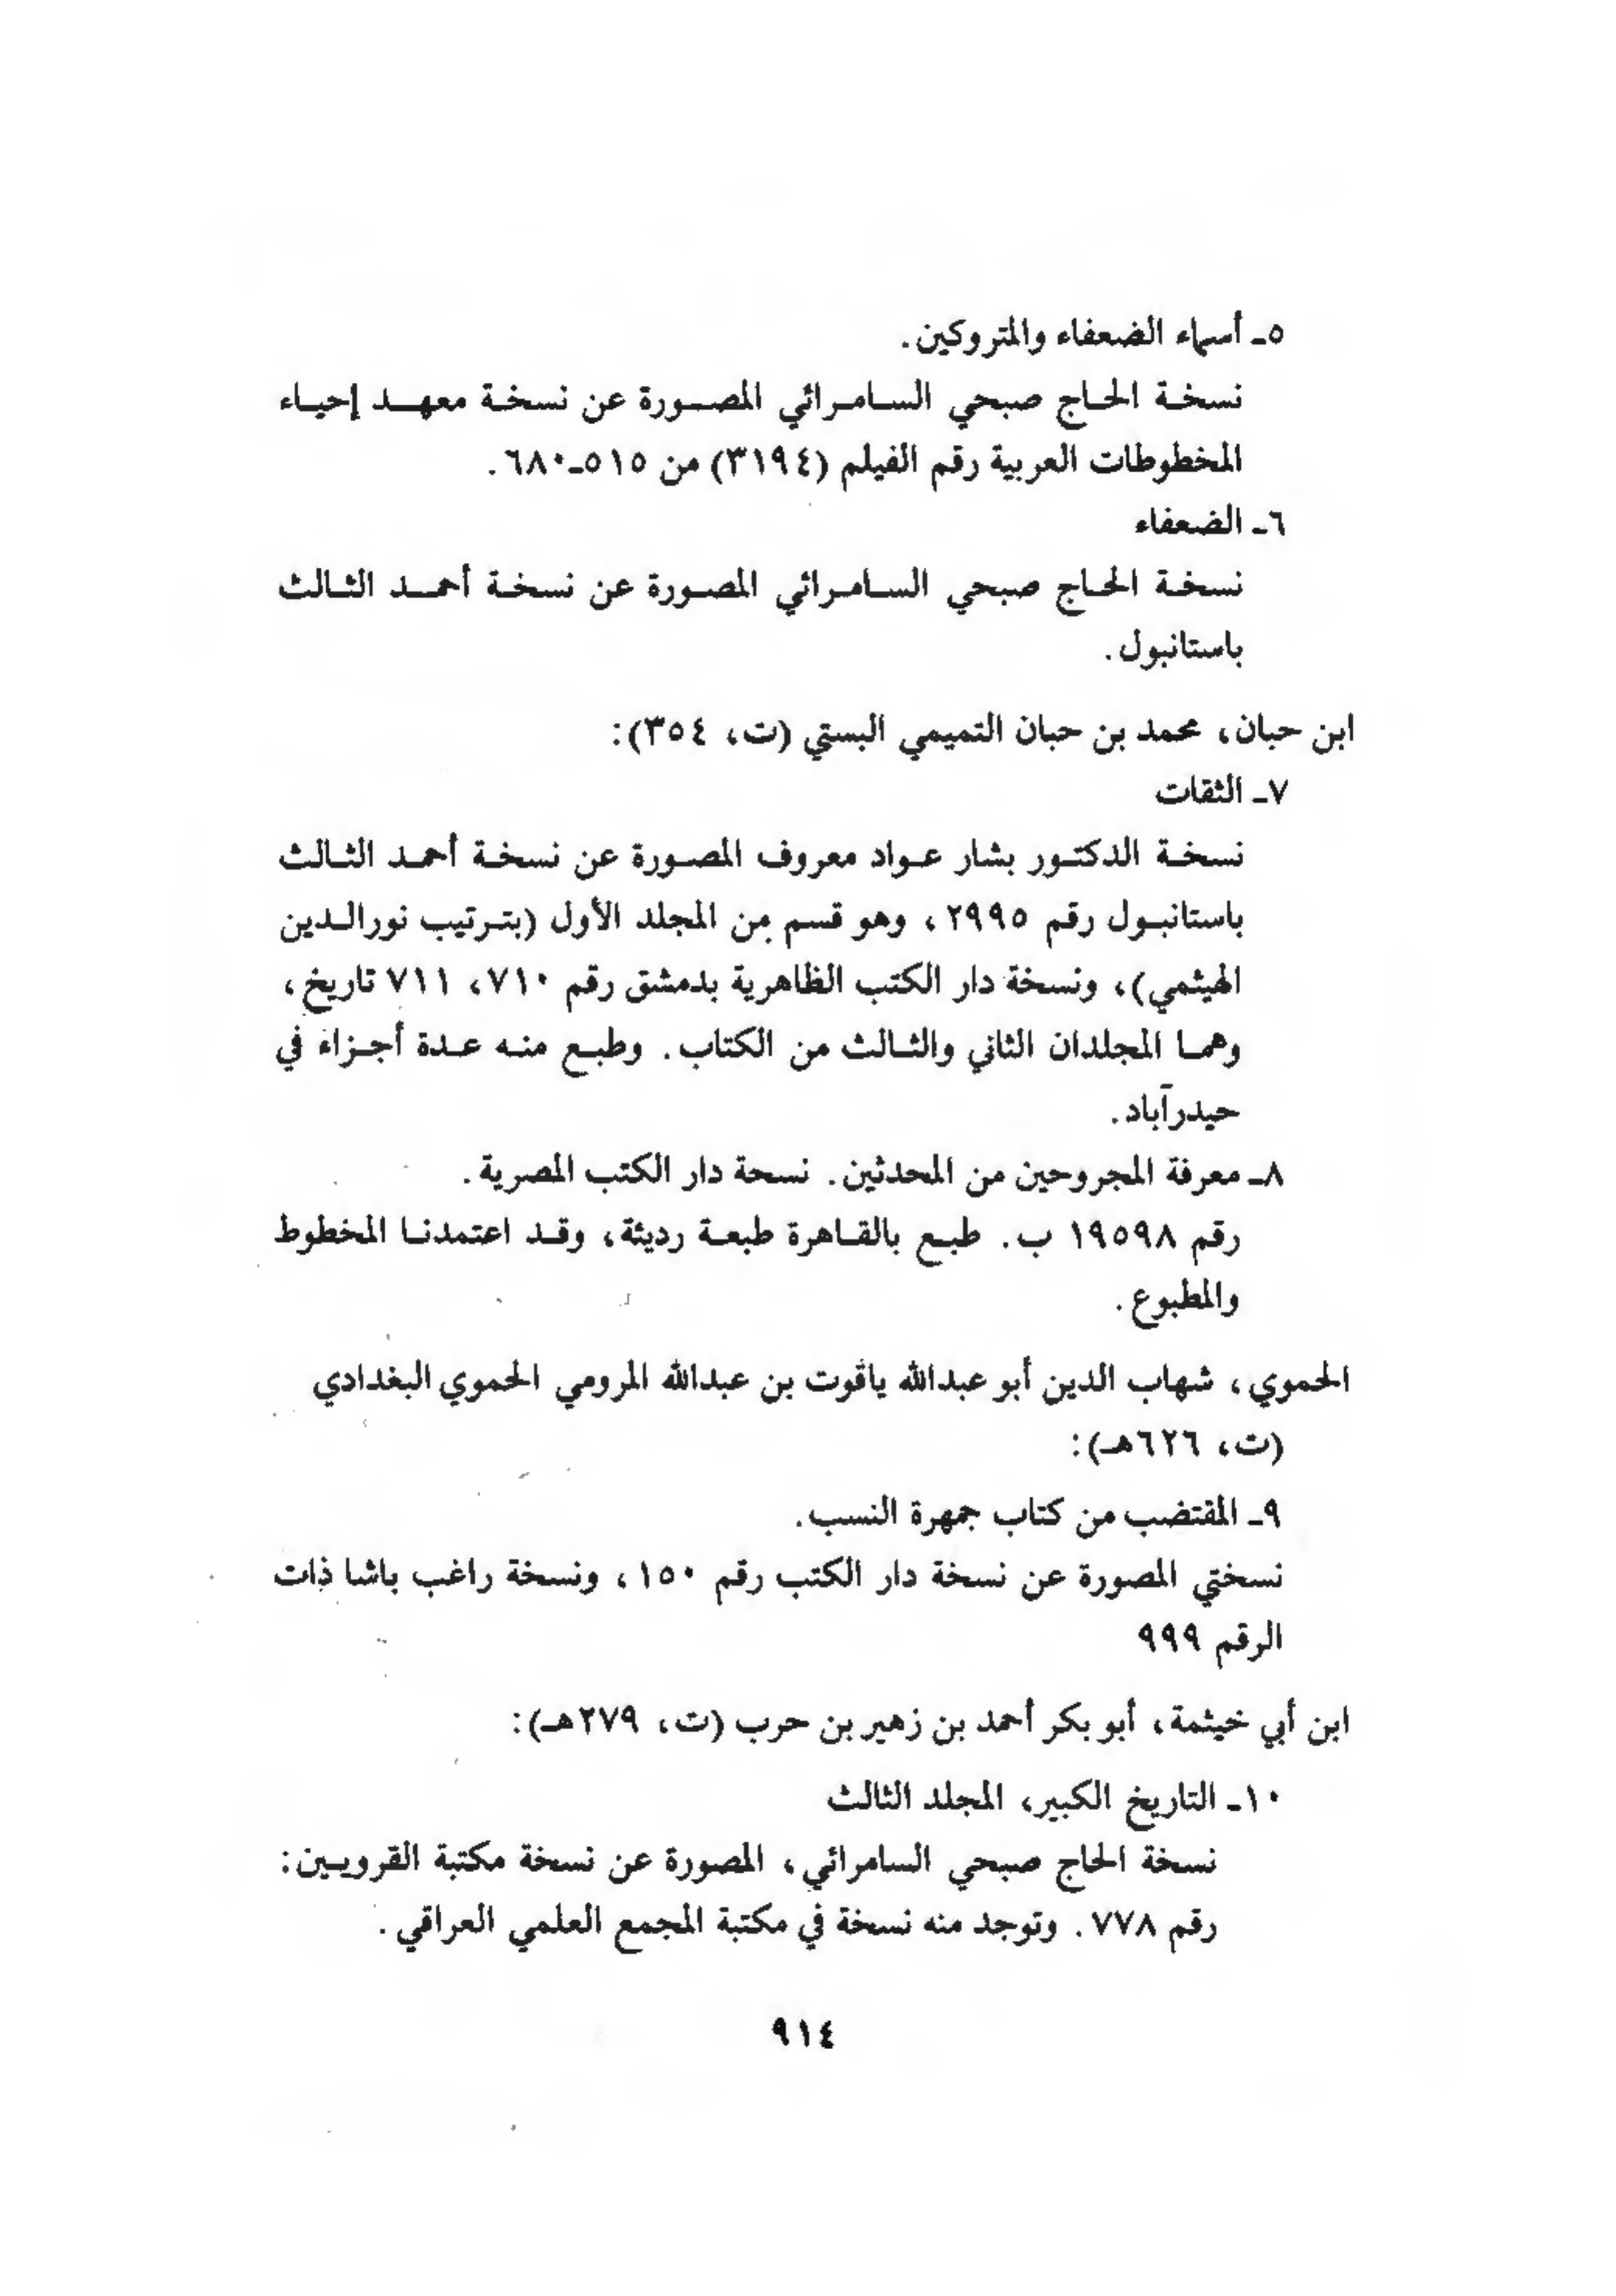 ٥ـ أسماء الضعفاء والمتروكين.
نسخة الحاج صبحي السامرائي المصورة عن نسخة معهد إحياء
المخطوطات العربية رقم الفيلم (٣١٩٤) من ٥١٥ـ٦٨٠.
٦ـ الضعفاء
نسخة الحاج صبحي السامرائي المصورة عن نسخة أحمد الثالث
باستانبول.
ابن حبان، محمد بن حبان التميمي البستي (ت، ٣٥٤):
٧ـ الثقات
نسخة الدكتور بشار عواد معروف المصورة عن نسخة أحمد الثالث
باستانبول رقم ٢٩٩٥، وهو قسم من المجلد الأول (بترتيب نورالدين
الهيثمي)، ونسخة دار الكتب الظاهرية بدمشق رقم ٧١٠، ٧١١ تاريخ،
وهما المجلدان الثاني والثالث من الكتاب. وطبع منه عدة أجزاء في
حيدرآباد.
٨ـ معرفة المجروحين من المحدثين. نسحة دار الكتب المصرية.
رقم ١٩٥٩٨ ب. طبع بالقاهرة طبعة رديئة، وقد اعتمدنا المخطوط
والمطبوع.
الحموي، شهاب الدين أبو عبدالله ياقوت بن عبدالله المرومي الحموي البغدادي
(ت، ٦٢٦هـ):
٩ـ المقتضب من كتاب جمهرة النسب.
نسختي المصورة عن نسخة دار الكتب رقم ١٥٠، ونسخة راغب باشا ذات
الرقم ٩٩٩
ابن أبي خيثمة، أبو بكر أحمد بن زهير بن حرب (ت، ٢٧٩هـ):
١٠ـ التاريخ الكبير، المجلد الثالث
نسخة الحاج صبحي السامرائي، المصورة عن نسخة مكتبة القرويين:
رقم ٧٧٨. وتوجد منه نسخة في مكتبة المجمع العلمي العراقي.
٩١٤